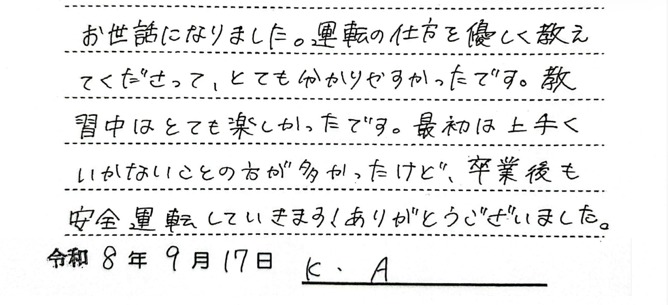 お世話になりました。運転の仕方を優しく教え
てくださって、とても分かりやすかったです。教
習中はとても楽しかったです。最初は上手く
いかないことの方が多かったけど、卒業後も
安全運転していきます!ありがとうございました。
令和 8 年 9 月 17 日 K. A